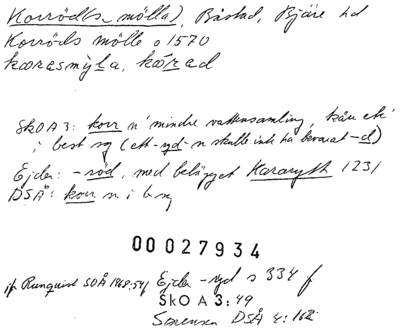 Korröds mölla), Båstad, Bjäre hd
Korröds mölle o 1570
kærasmỳla, kå̄rad
SkOA 3: korr n' mindre vattensamling, kärr etc'
i best sg (ett -yd- n skulle inte ha bevarat -d)
Ejder: -röd, med belägget Kararyth 1231
DSÅ: korr n i b sg
00 027934
jfr Runquist SOÅ 1968:54f Ejder -ryd s 334 f
SkO A 3:49
Sørensen DSÅ 4:162